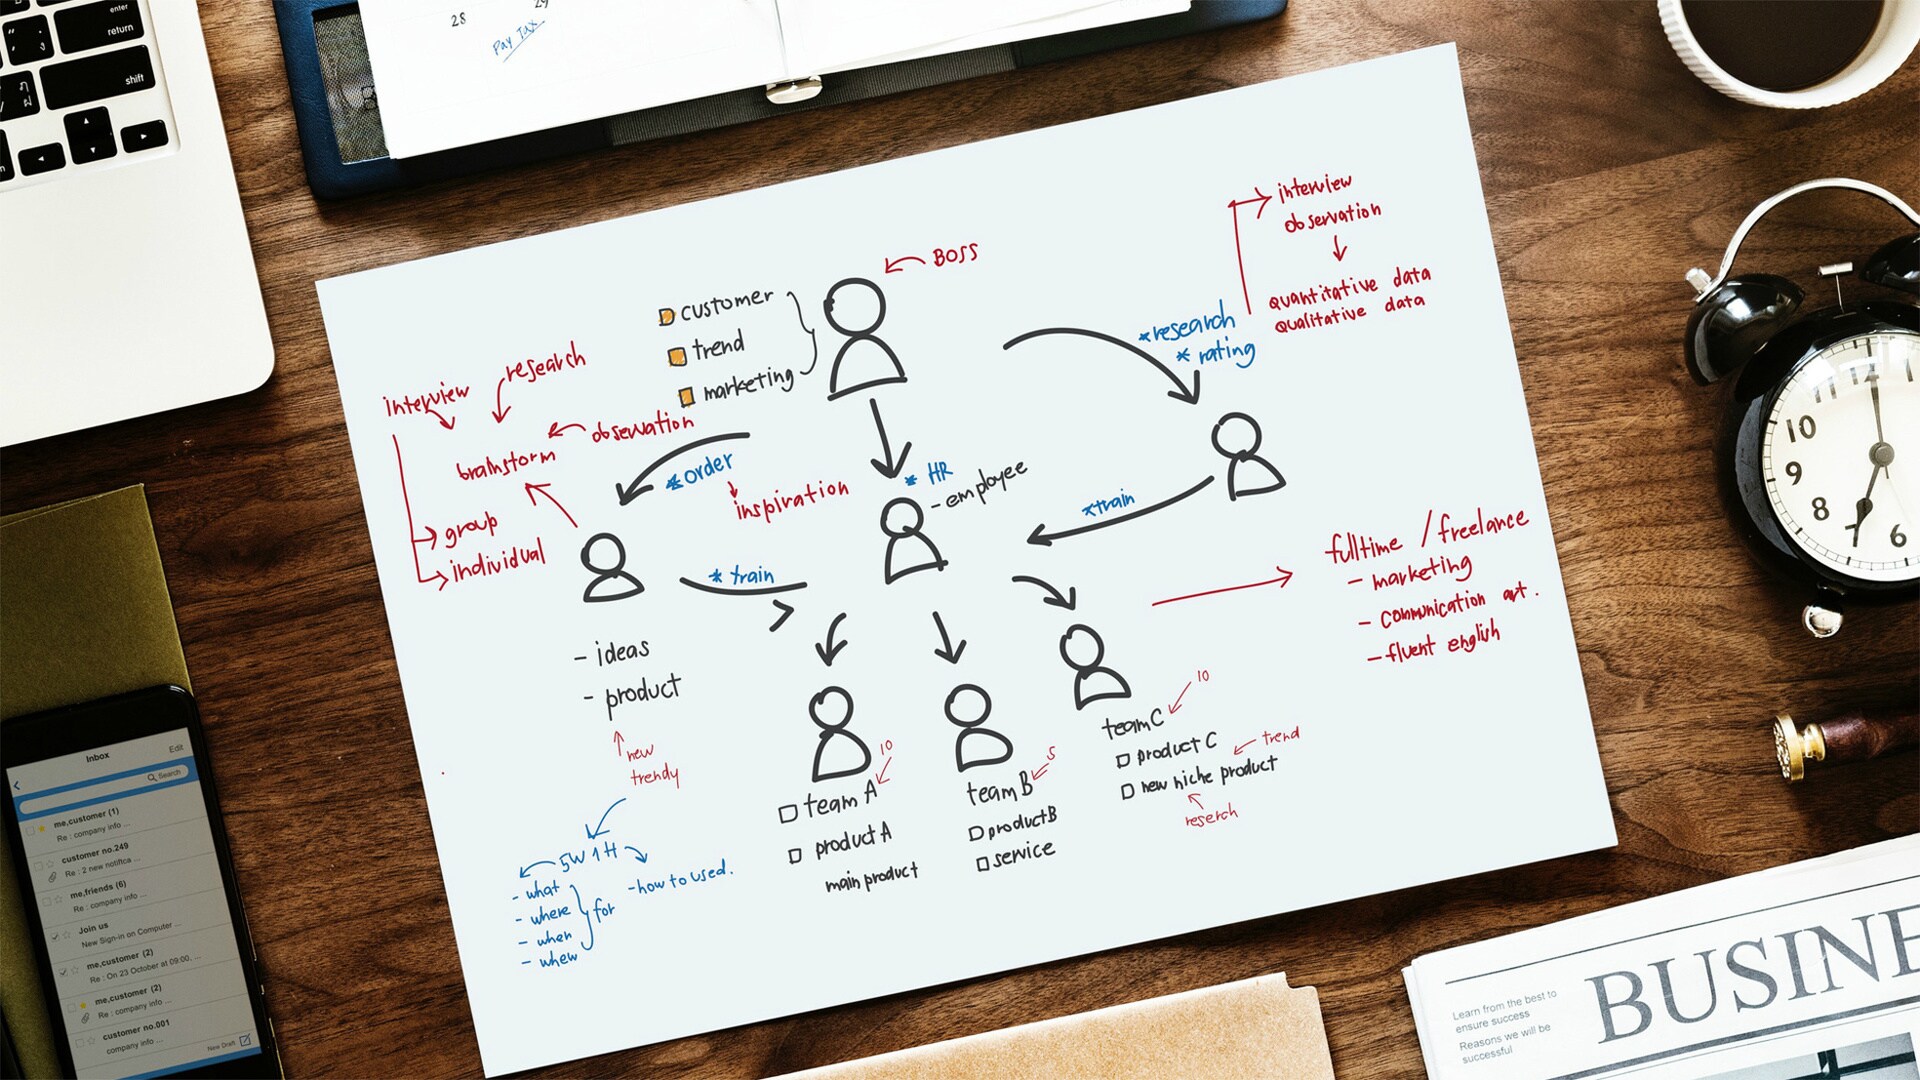 enter
return
shift
28
29
Pay Tax
BOSS
customer
trend
marketing
interview
observation
quantitative data
qualitative data
*research
* rating
research
interview
observation
brainstorm
*order
inspiration
group
individual
* HR
- employee
*train
* train
fulltime / freelance
- marketing
- communication art.
- fluent english
- ideas
- product
new
trendy
5W 1H
- what
- where
- when
- whew
for
-how to used.
10
team A
product A
main product
5
team B
product B
service
10
team C
product C
trend
new niche product
reserch
Inbox
Edit
Search
me,customer (1)
Re : company info ...
customer no.249
Re : 2 new notifica ...
me,friends (6)
Re : company info ...
Join us
New Sign-in on Computer ...
me,customer (2)
Re : On 23 October at 09:00, ...
me,customer (2)
Re : company info ...
customer no.001
company info ...
New Draft
12
10
9
8
6
Learn from the best to
ensure success
Reasons we will be
successful
BUSINE